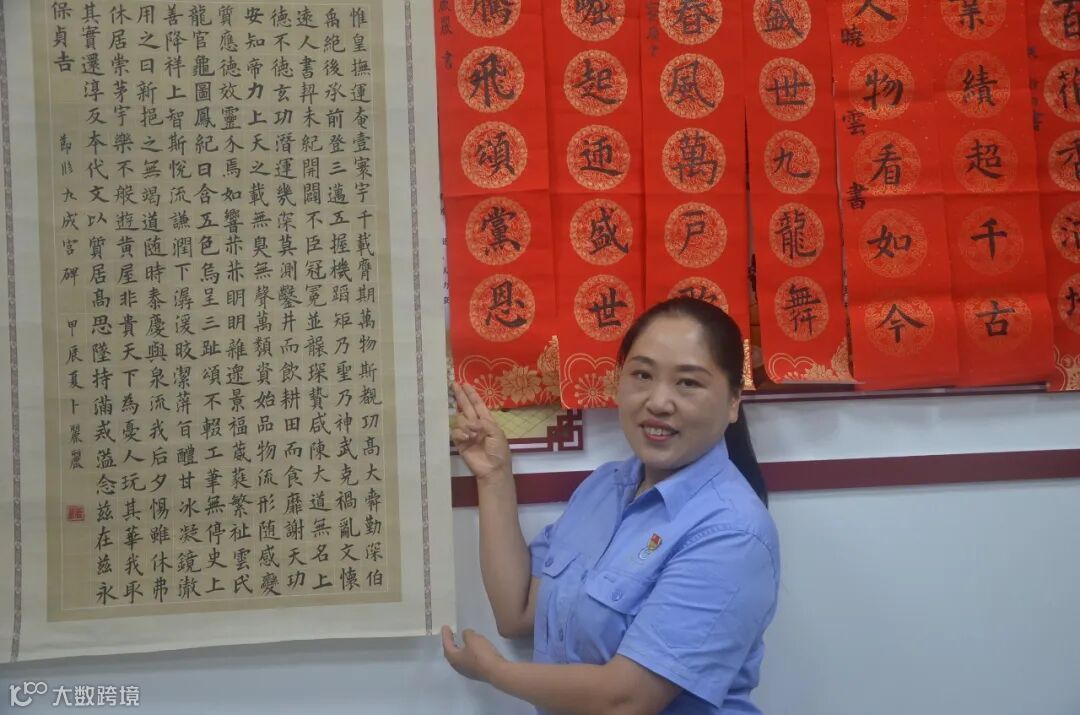 惟皇撫運奄壹寰宇千載膺期萬物斯覩功高大舜勤深伯
禹絕後承前登三邁五握機蹈矩乃聖乃神武克禍亂文懷
遠人書契未紀開闢不臣冠冕並襲琛贄咸陳大道無名上
德不德玄功潛運幾深莫測鑿井而飲耕田而食靡謝天功
安知帝力上天之載無臭無聲萬類資始品物流形随感變
質應德放靈介焉如響赫赫明明雜遝景福葳蕤繁祉雲氏
龍官龜圖鳳紀日含五色烏呈三趾頌不輟工筆無停史上
善降祥上智斯悅流謙潤下潺湲皎潔蓱旨醴甘冰凝鏡澈
用之日新挹之無竭道随時泰慶與泉流我后夕惕雖休弗
休居崇茅宇樂不般遊黄屋非貴天下為憂人玩其華我取
其實還淳反本代文以質居髙思墜持滿戒溢念茲在茲永
保貞吉
節臨九成宮碑 甲辰夏卜麗麗
香
業績超千古
物看如今
曉雲書
盛世九龍舞
春風萬戶
崛起迎盛世
騰飛頌黨恩
書
大数跨境